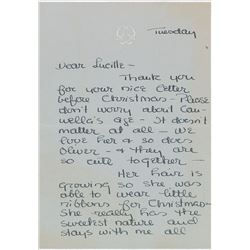 Tuesday
Dear Lucille-
Thank you
for your nice letter
before Christmas - Please
don't worry about Cam-
wella's age - It doesn't
matter at all - we
love her & so does
Oliver - & they are
so cute together -
Her hair is
growing so she was
able to wear little
ribbons for Christmas -
She really has the
sweetest nature and
stays with me all